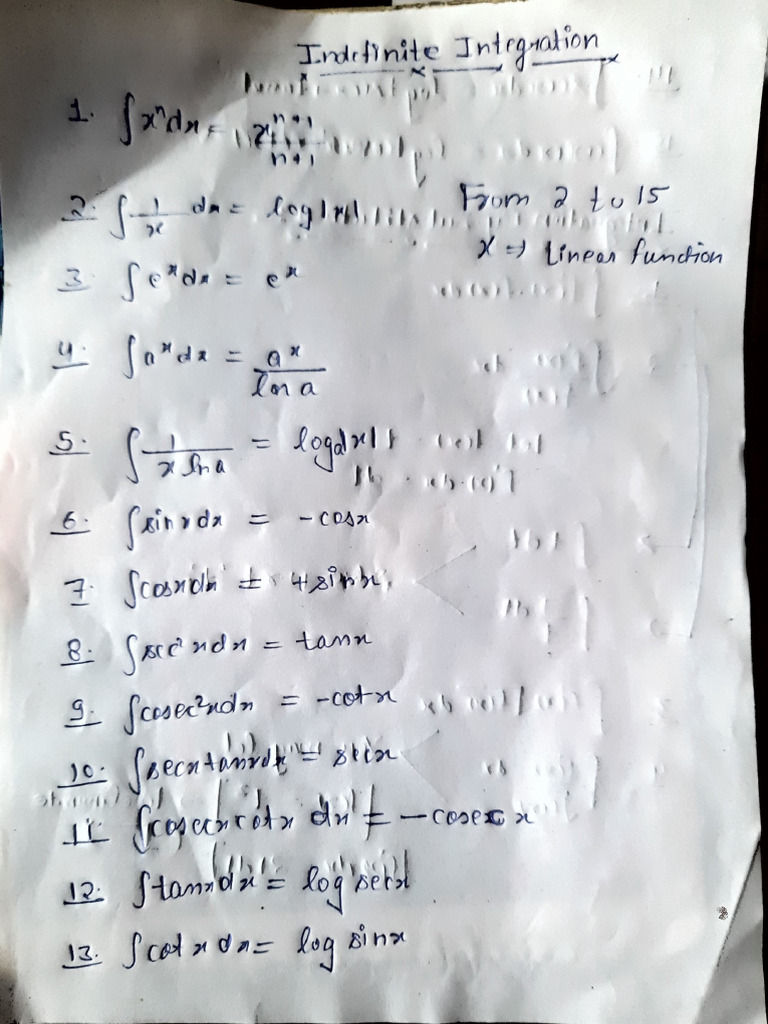 Indefinite Integration
1. ∫xⁿdx = xⁿ⁺¹/n+1
2. ∫1/x dx = log|x|
From 2 to 15
x ⇒ Linear function
3. ∫eˣdx = eˣ
4. ∫aˣdx = aˣ/ln a
5. ∫1/x ln a = logₐ|x|
6. ∫sinxdx = -cosx
7. ∫cosxdx = +sinx
8. ∫sec²xdx = tanx
9. ∫cosec²xdx = -cotx
10. ∫secxtanxdx = secx
11. ∫cosecxcotx dx = -cosec x
12. ∫tanxdx = log secx
13. ∫cotxdx = log sinx